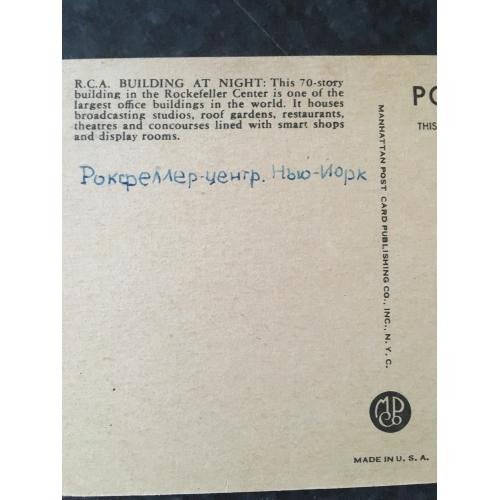 R.C.A. BUILDING AT NIGHT: This 70-story
building in the Rockefeller Center is one of the
largest office buildings in the world. It houses
broadcasting studios, roof gardens, restaurants,
theatres and concourses lined with smart shops
and display rooms.
Рокфеллер-центр. Нью-Йорк
PO
THIS
MANHATTAN POST CARD PUBLISHING CO., INC., N. Y. C.
MPCo
MADE IN U. S. A.